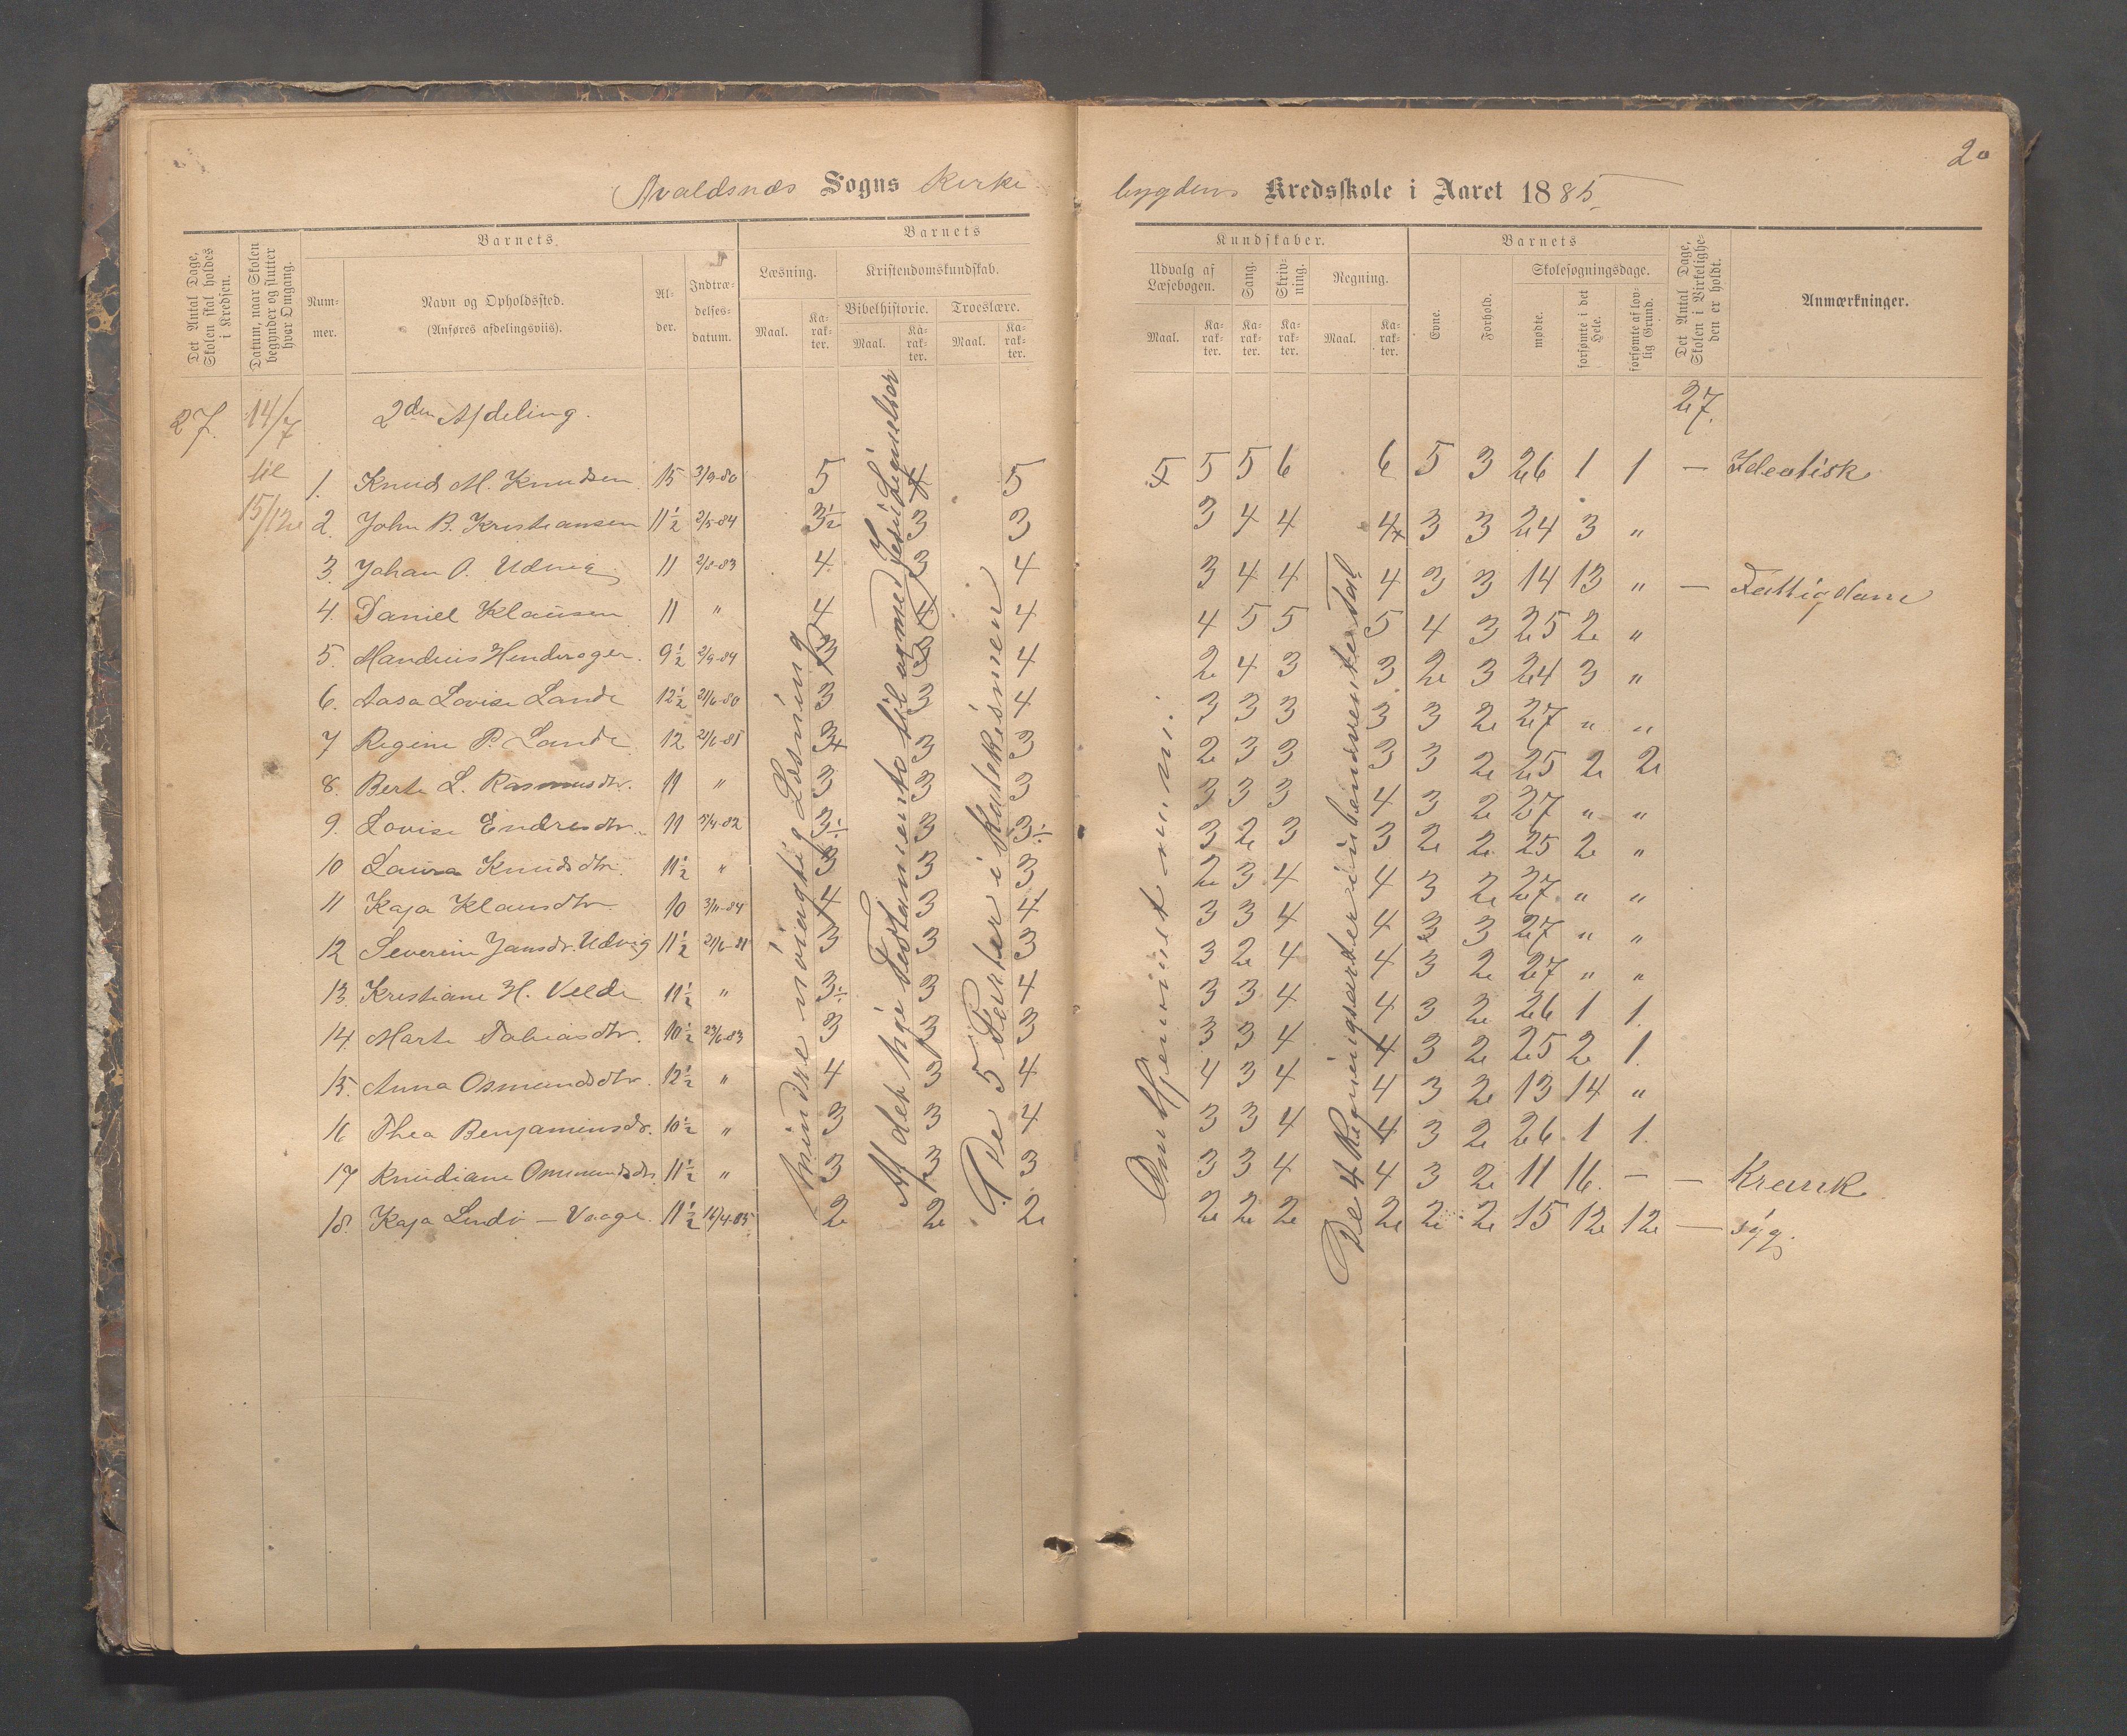 20
Avaldsnæs Sogns Kirke bygdens Kredsskole i Aaret 1885
Det Antal Dage, Skolen skal holdes i Kredsen.
Datum, naar Skolen begynder og slutter hver Omgang.
Barnets
Nummer.
Navn og Opholdssted.
(Anføres afdelingsviis).
Alder.
Indtrædelsesdatum.
Barnets
Læsning.
Maal.
Karakter.
Kristendomskundskab.
Bibelhistorie.
Maal.
Karakter.
Troeslære.
Maal.
Karakter.
Kundskaber.
Udvalg af Læsebogen.
Maal.
Karakter.
Sang.
Karakter.
Skrivning.
Karakter.
Regning.
Maal.
Karakter.
Barnets
Evne.
Forhold.
Skolesøgningsdage.
mødte.
forsømte i det Hele.
forsømte af lovlig Grund.
Det Antal Dage, Skolen i Virkeligheden er holdt.
Anmærkninger.
27. 14/7 2den Afdeling. 27.
til 1. Knud M. Knudsen 15 3/9-80 5 5 5 5 5 6 6 5 3 26 1 1 —
15/12 2. John B. Kristiansen 11½ 2/5-84 3½ 3 3 3 4 4 4x 3 3 24 3 "
3. Johan O. Udvig 11 2/8-83 4 3 4 3 4 4 4 3 3 14 13 " — Fattigdom
4. Daniel Klausen 11 " 4 4 4 4 5 5 5 4 3 25 2 "
5. 9½ 2/9-84 3 3 4 2 4 3 3 2 3 24 3 "
6. Aasa Lovise Lande 12½ 21/6-80 3 3 4 3 3 3 3 3 2 27 " "
7 Regine P. Lande 12 21/6-81 3x 3 3 2 3 3 3 3 2 25 2 2
8. Berte L. Rasmusdtr. 11 " 3 3 3 3 3 3 4 3 2 27 " "
9. Lovise Endresdtr. 11 3/4-82 3÷ 3 3÷ 3 2 3 3 2 2 25 2 "
10 Laura Knudsdtr. 11½ " 3 3 3 2 3 4 4 3 2 27. " "
11 Kaja Klausdtr. 10 3/11-84 4 3 4 3 3 4 4 3 3 27 " "
12 Severine Jansdr. Udvig 11½ 21/6-81 3 3 3 3 2 4 4 3 2 27 " "
13. Kristiane H. Velde 11½ " 3÷ 3 4 3 3 4 4 3 2 26 1 1.
14. Marte Tobiasdtr. 10½ 23/6-83 3 3 3 3 3 4 4 3 2 25 2 1.
15. Anna Osmundsdtr. 12½ " 4 3 4 4 3 4 4 3 2 13 14 "
16 Thea Benjaminsdr. 10½ " 3 3 4 3 3 4 4 3 2 26. 1 1.
17 Knudiane Osmundsdtr. 11½ " 3 3 3 3 3 4 4 3 2 11 16. — — Krank
18. Kaja Lindö — Vaage. 11½ 16/4-85 2 2 2 2 2 2 2 2 2 15 12 12 — syg.
Mindre nöiagtig Læsning
Af det nye Testamente til og med Jesu Lignelser
De 5 Parter i Katekismen
De 4 Regningsarter i ubenævnte Tal